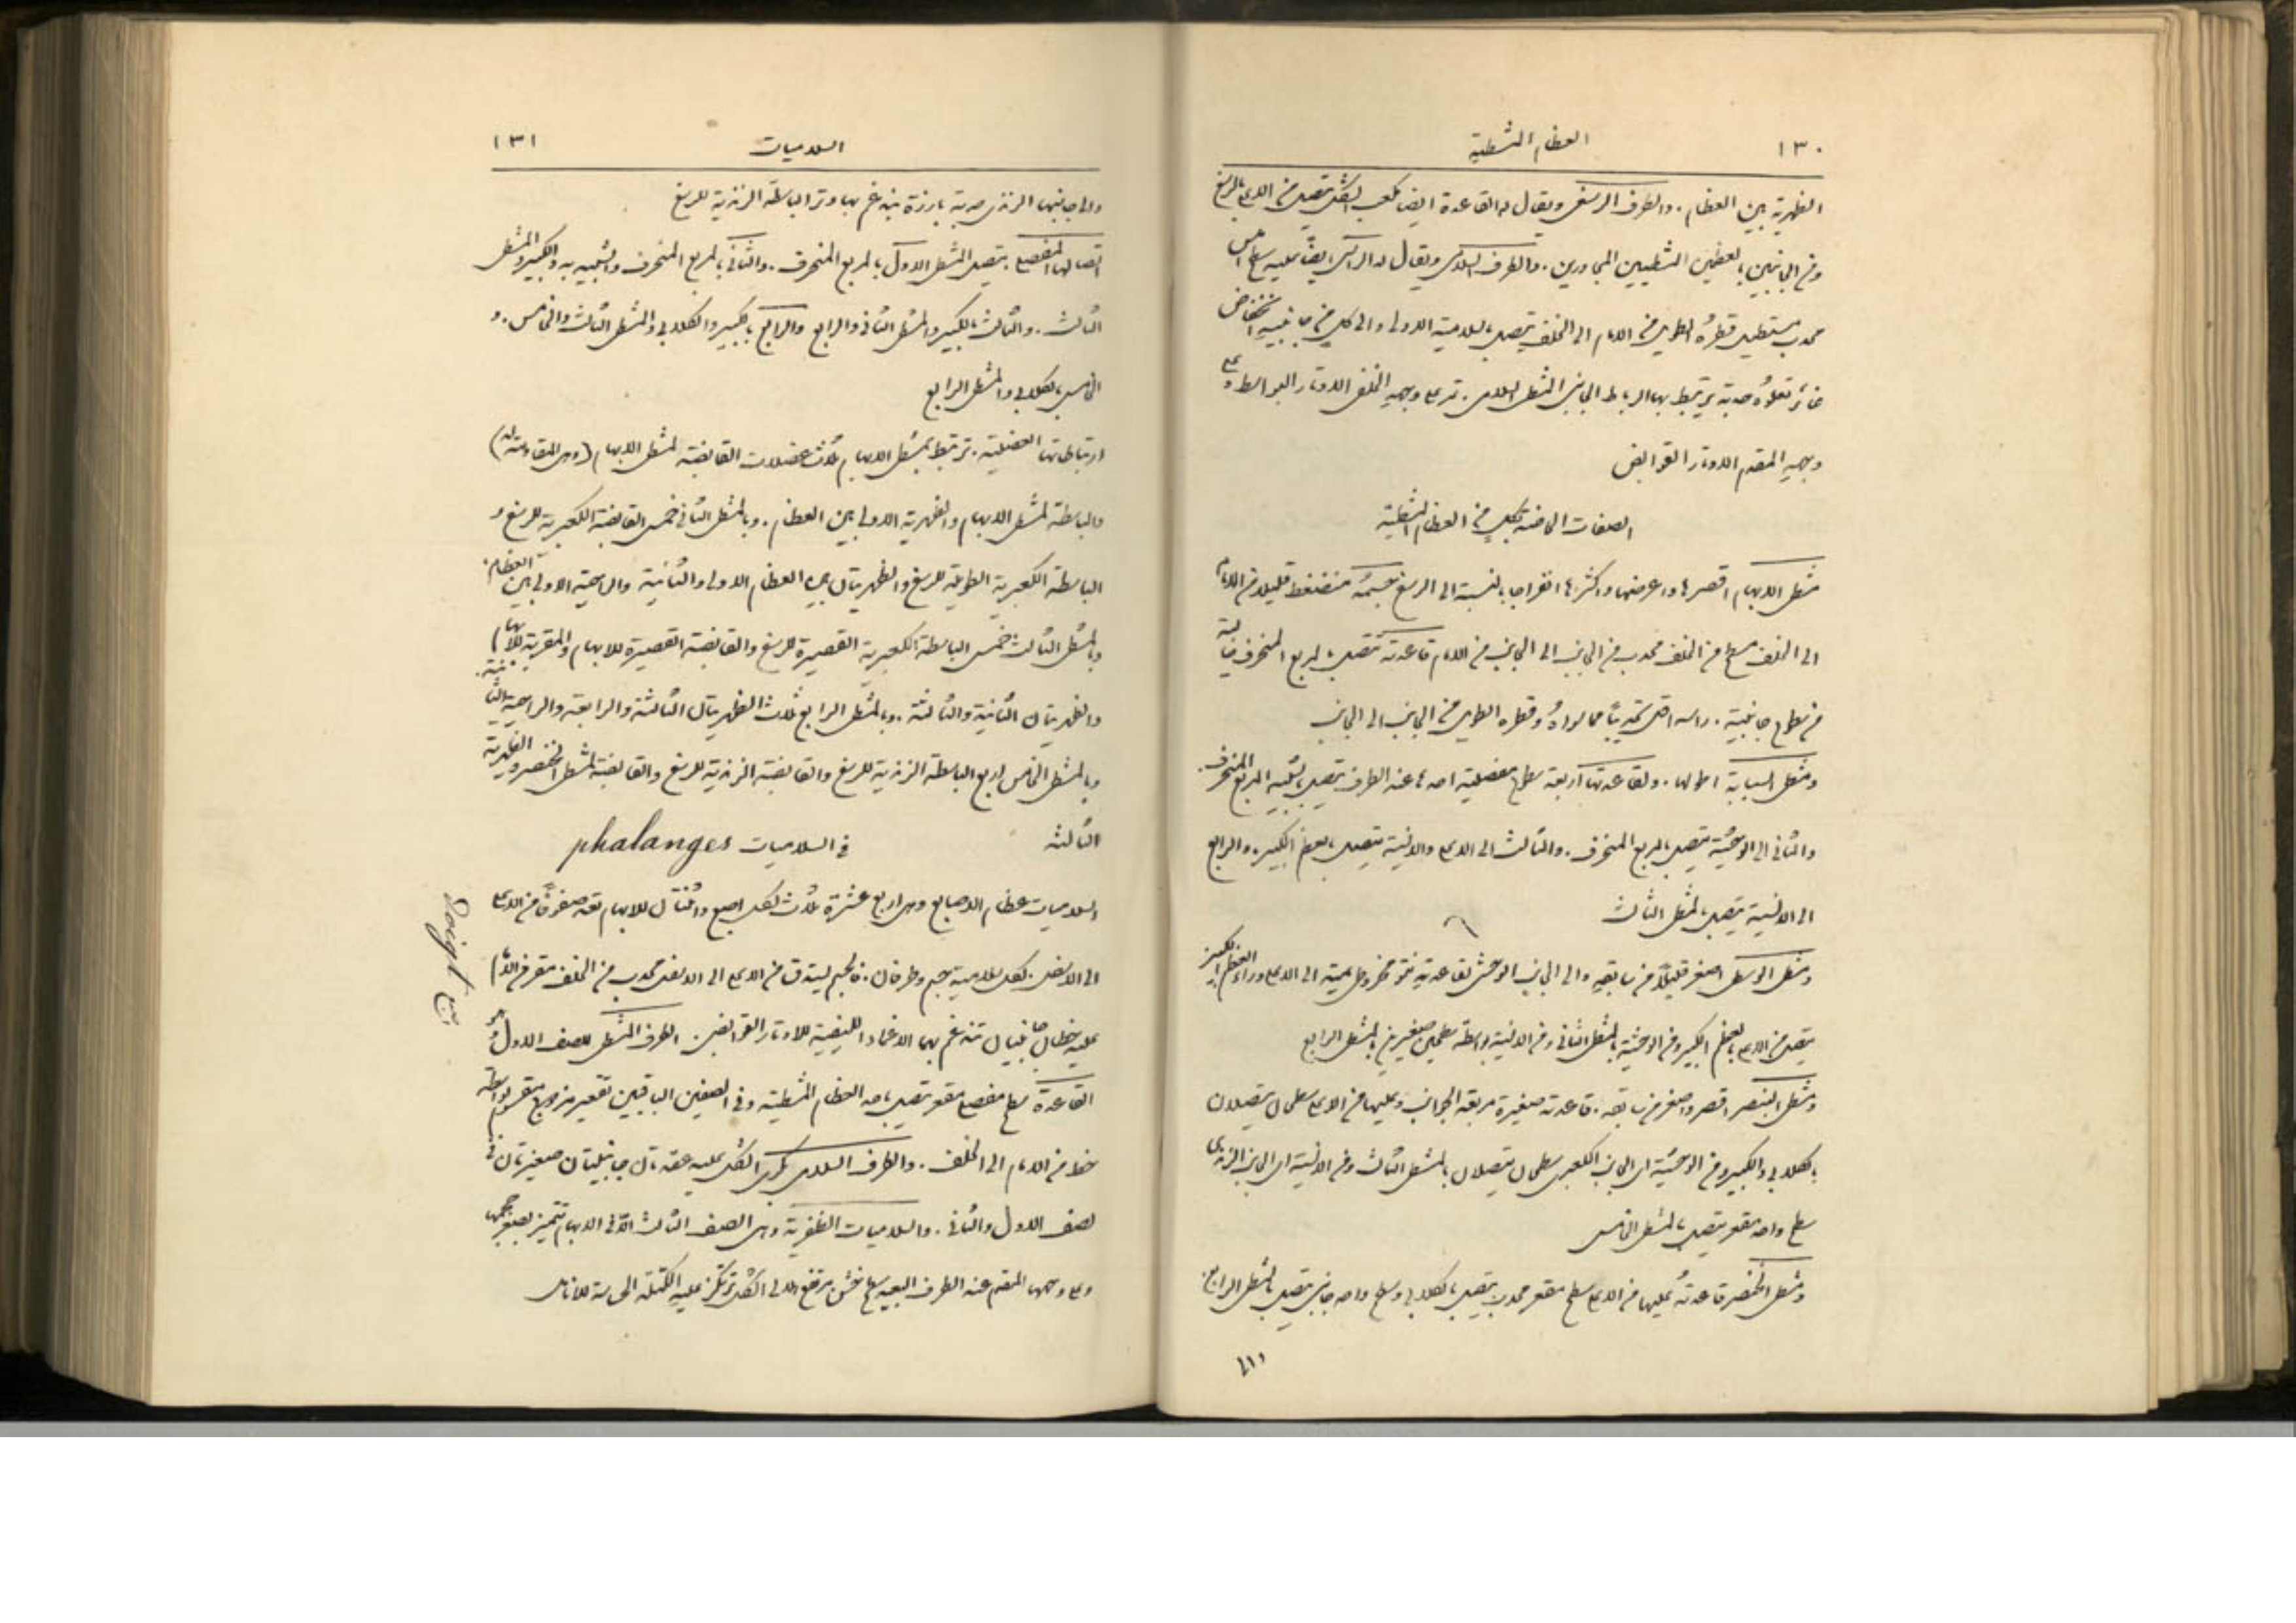 ١٣٠
العظام المشطية
الظهرية بين العظام. والطرف الرسغي ويقال له القاعدة ايضا مكعب الشكل يتصل من الاعلى بالرسغ
ومن الجانبين بالعظمين المشطيين المجاورين. والطرف السلامي ويقال له الراس ايضًا عليه سطح املس
محدب مستطيل قطرهُ الطويل من الامام الى الخلف يتصل بالسلامية الاولى والى كل من جانبيهِ انخفاض
غائر تعلوهُ حدبة يرتبط بها الرباط الجانبي المشطي السلامي. تمر على وجههِ الخلفي الاوتار البواسط وعلى
وجههِ المقدم الاوتار القوابض
الصفات الخاصة بكلٍ من العظام المشطية
مشط الابهام اقصرها واعرضها واكثرها انفراجا بالنسبة الى الرسغ جسمهُ منضغط قليلا من الامام
الى الخلف مسطح من الخلف محدب من الجانب الى الجانب من الامام قاعدتهُ تتصل بالمربع المنحرف خالية
من سطوح جانبية. راسه اقل تحديبًا مما سواهُ وقطره الطويل من الجانب الى الجانب
ومشط السبابة اطولها. ولقاعدتها اربعة سطوح مفصلية احدها عند الطرف يتصل بشبيه المربع المنحرف.
والثاني الى الوحشية يتصل بالمربع المنحرف. والثالث الى الاعلى والانسية يتصل بالعظم الكبير. والرابع
الى الانسية يتصل بالمشط الثالث
ومشط الوسطى اصغر قليلاً من سابقهِ والى الجانب الوحشي لقاعدتهِ نتوٌ مخروطي يمتد الى الاعلى وراء العظم الكبير
يتصل من الاعلى بالعظم الكبير ومن الوحشية بالمشط الثاني ومن الانسية بواسطة سطحين صغيرين بالمشط الرابع
ومشط البنصر اقصر واصغر من سابقه. قاعدته صغيرة مربعة الجوانب وعليها من الاعلى سطحان يتصلان
بالكلابي والكبير ومن الوحشية اي الجانب الكعبري سطحان يتصلان بالمشط الثالث ومن الانسية اي الجانب الزندي
سطح واحد مقعر يتصل بالمشط الخامس
ومشط الخنصر قاعدتهُ عليها من الاعلى سطح مقعر محدب يتصل بالكلابي وسطح واحد جانبي يتصل بالمشط الرابع.
السلاميات
١٣١
والى جانبها الزندي حدبة بارزة يندغم بها وتر الباسطة الزندية للرسغ
اتصالها المفصلي. يتصل المشط الاول بالمربع المنحرف. والثاني بالمربع المنحرف والشبيه به والكبير والمشط
الثالث. والثالث بالكبير والمشط الثاني والرابع والرابع بالكبير والكلابي والمشط الثالث والخامس. و
الخامس بالكلابي والمشط الرابع
ارتباطاتها العضلية. ترتبط بمشط الابهام ثلاث عضلات القابضة لمشط الابهام (وهي المقاومة له)
والباسطة لمشط الابهام والظهرية الاولى بين العظام. وبالمشط الثاني خمس القابضة الكعبرية للرسغ و
الباسطة الكعبرية الطويلة للرسغ والظهريتان بين العظام الاولى والثانية والراحية الاولى بين العظام.
وبالمشط الثالث خمس الباسطة الكعبرية القصيرة للرسغ والقابضة القصيرة للابهام والمقربة للابهام
والظهريتان الثانية والثالثة. وبالمشط الرابع ثلاث الظهريتان الثالثة والرابعة والراحية الثانية
وبالمشط الخامس اربع الباسطة الزندية للرسغ والقابضة الزندية للرسغ والقابضة لمشط الخنصر والظهرية
الثالثة
في السلاميات phalanges
السلاميات عظام الاصابع وهي اربع عشرة ثلاث لكل اصبع واثنتان للابهام تعد صفوفًا من الاعلى
الى الاسفل. لكل سلامية جسم وطرفان. فالجسم يستدق من الاعلى الى الاسفل محدب من الخلف مقعر من الامام
عليه خطان جانبيان تندغم بهما الاغماد الليفية للاوتار القوابض. الطرف المشطي للصف الاول وهو
القاعدة سطح مفصلي مقعر يتصل باحد العظام المشطية وفي الصفين الباقيين تقعير مزدوج مقسوم بواسطة
خط من الامام الى الخلف. والطرف السلامي بكري الشكل عليه عقدتان جانبيتان صغيرتان في
الصف الاول والثاني. والسلاميات الظفرية وهي الصف الثالث الا في الابهام تتميز بصغر حجمها
وعلى وجهها المقدم عند الطرف البعيد سطح خشن مرتفع هلالي الشكل ترتكز عليهِ الكتلة الحساسة للانامل
Doigt